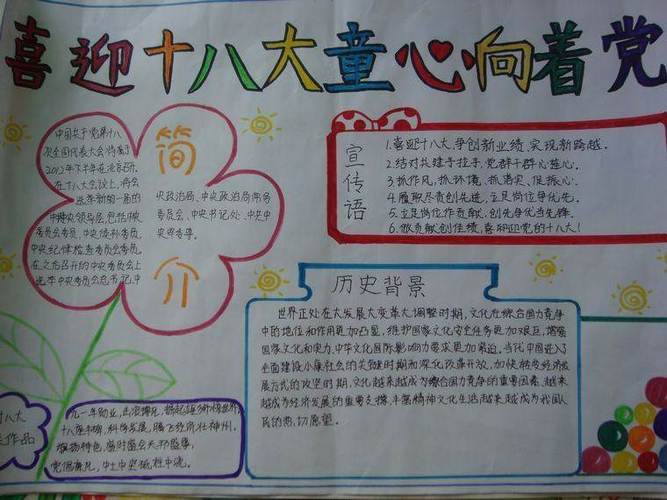 喜迎十八大童心向着党
简介
中国共产党第十八
次全国代表大会将于
2012年下半年在北京召开。
在十八大会议上,将会
选举新的一届的
中央领导层,包括中央
委员会委员、中央候补委员、
中央纪律检查委员会委员、
在之后召开的中央委员会上
选举中央委员会总书记、中
央政治局、中央政治局常务
委员会、中央书记处、中央
军委等。
宣传语
1.喜迎十八大,争创新业绩,实现新跨越。
2.结对共建手拉手,党群干群心连心。
3.抓作风,抓环境,抓落实,促振心。
4.履职尽责创先进,立足岗位争优先。
5.立足岗位作贡献,创先争优当先锋。
6.做贡献创佳绩,喜迎党的十八大!
历史背景
世界正处在大发展大变革大调整时期,文化在综合国力竞争
中的地位和作用更加凸显,维护国家文化安全任务更加艰巨,增强
国家文化软实力、中华文化国际影响力要求更加紧迫。当代中国进入了
全面建设小康社会的关键时期和深化改革开放、加快转变经济发
展方式的攻坚时期,文化越来越成为综合国力竞争的重要因素、越来
越成为经济发展的重要支撑,丰富精神文化生活越来越成为我国人
民的热切愿望。
十八大
作品
十八届丰碑,科学发展,腾飞经济壮神州。